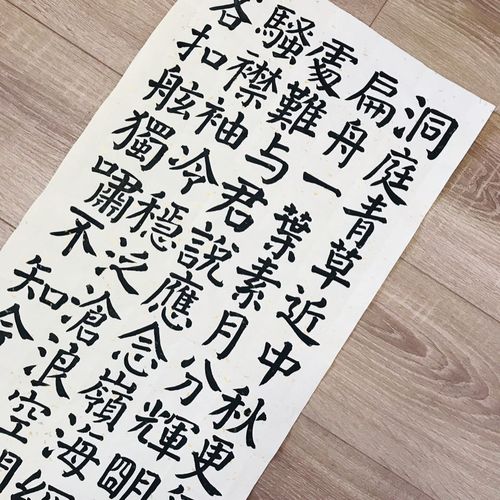 洞庭青草近中秋更
扁舟一葉素月分輝明
處難与君說應念嶺海經
騷襟袖冷穩泛滄浪空
客扣舷獨嘯不知今